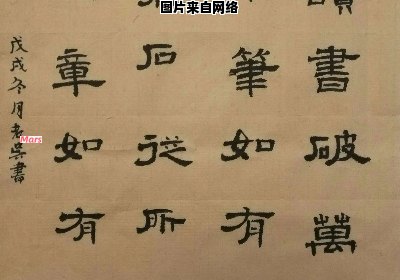 图片来自网络
讀書破萬
筆如有
石從所
章如有
戊戌冬月老吳書
Mars